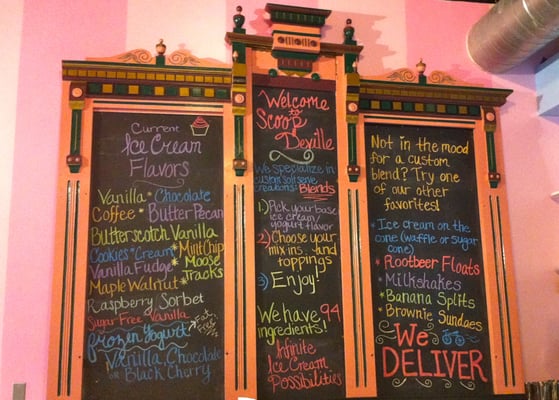 Current
Ice Cream
Flavors
Vanilla * Chocolate
Coffee * Butter Pecan
Butterscotch Vanilla
Cookies & Cream * Mint Chip
Vanilla Fudge * Moose Tracks
Maple Walnut *
Raspberry Sorbet
Sugar Free Vanilla
frozen Yogurt * Fat Free
Vanilla, Chocolate
or Black Cherry
Welcome to
Scoop
Deville
We specialize in
custom soft serve
creations: Blends
1) Pick your base
ice cream/
yogurt flavor
2) Choose your
mix ins and
toppings
3) Enjoy!
We have 94
ingredients!
Infinite
Ice Cream
Possibilities
Not in the mood
for a custom
blend? Try one
of our other
favorites!
* Ice cream on the
cone (waffle or sugar
cone)
* Rootbeer Floats
* Milkshakes
* Banana Splits
* Brownie Sundaes
We
DELIVER